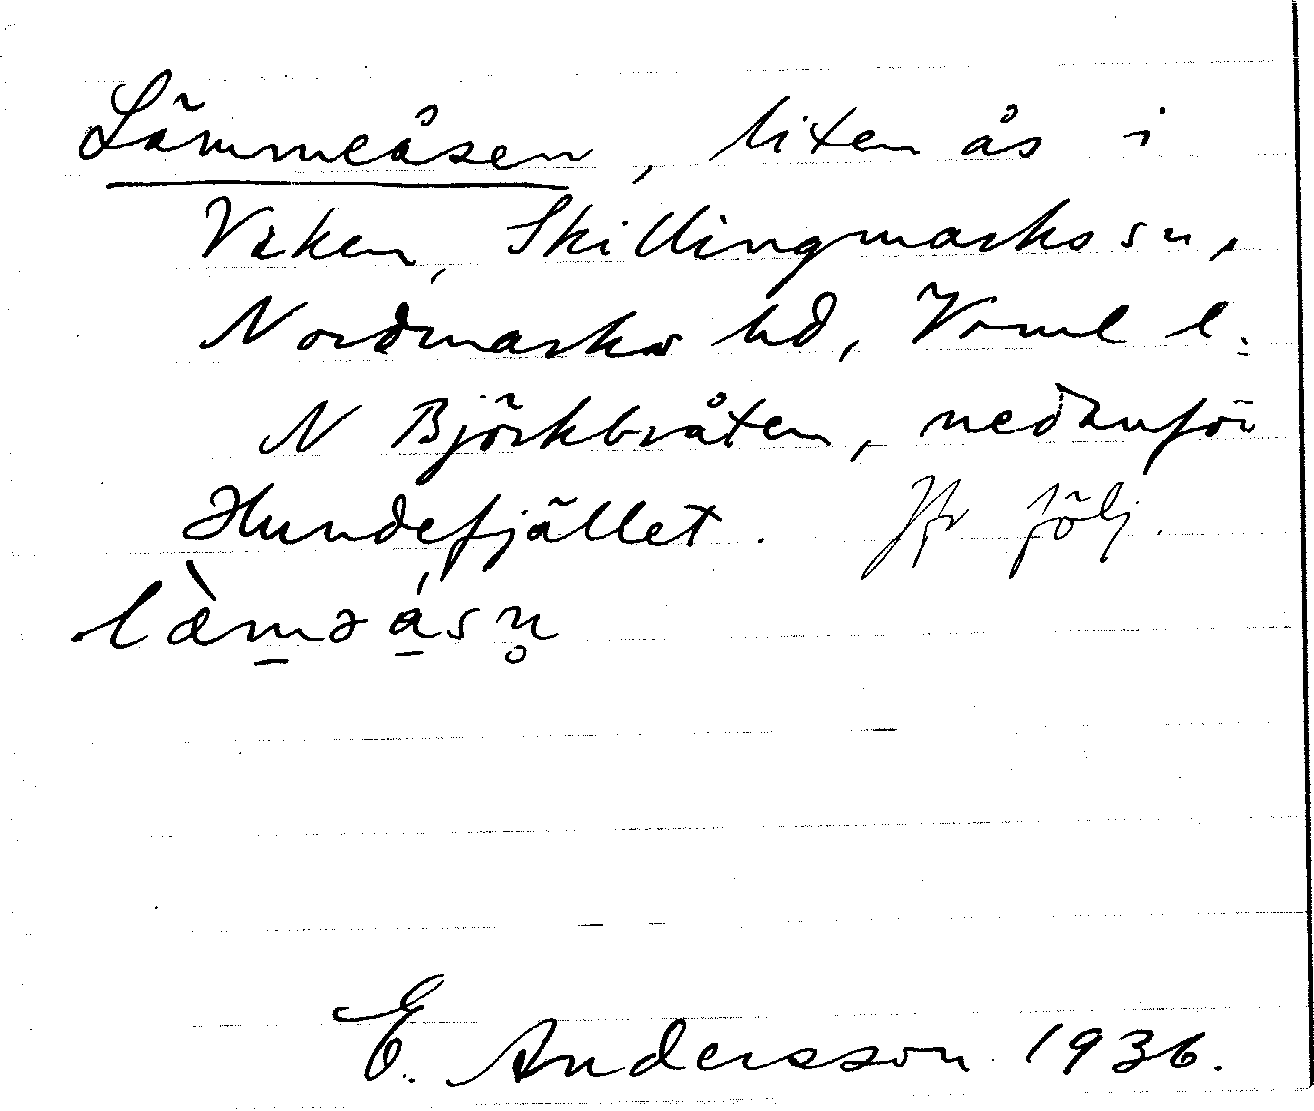 Lämmeåsen, liten ås i
Viken, Skillingmarks sn,
Nordmarks hd, Vrml l.
N Björkbråten, nedanför
Hundefjället. Jfr följ.
læ̀məásn̥
E. Andersson 1936.